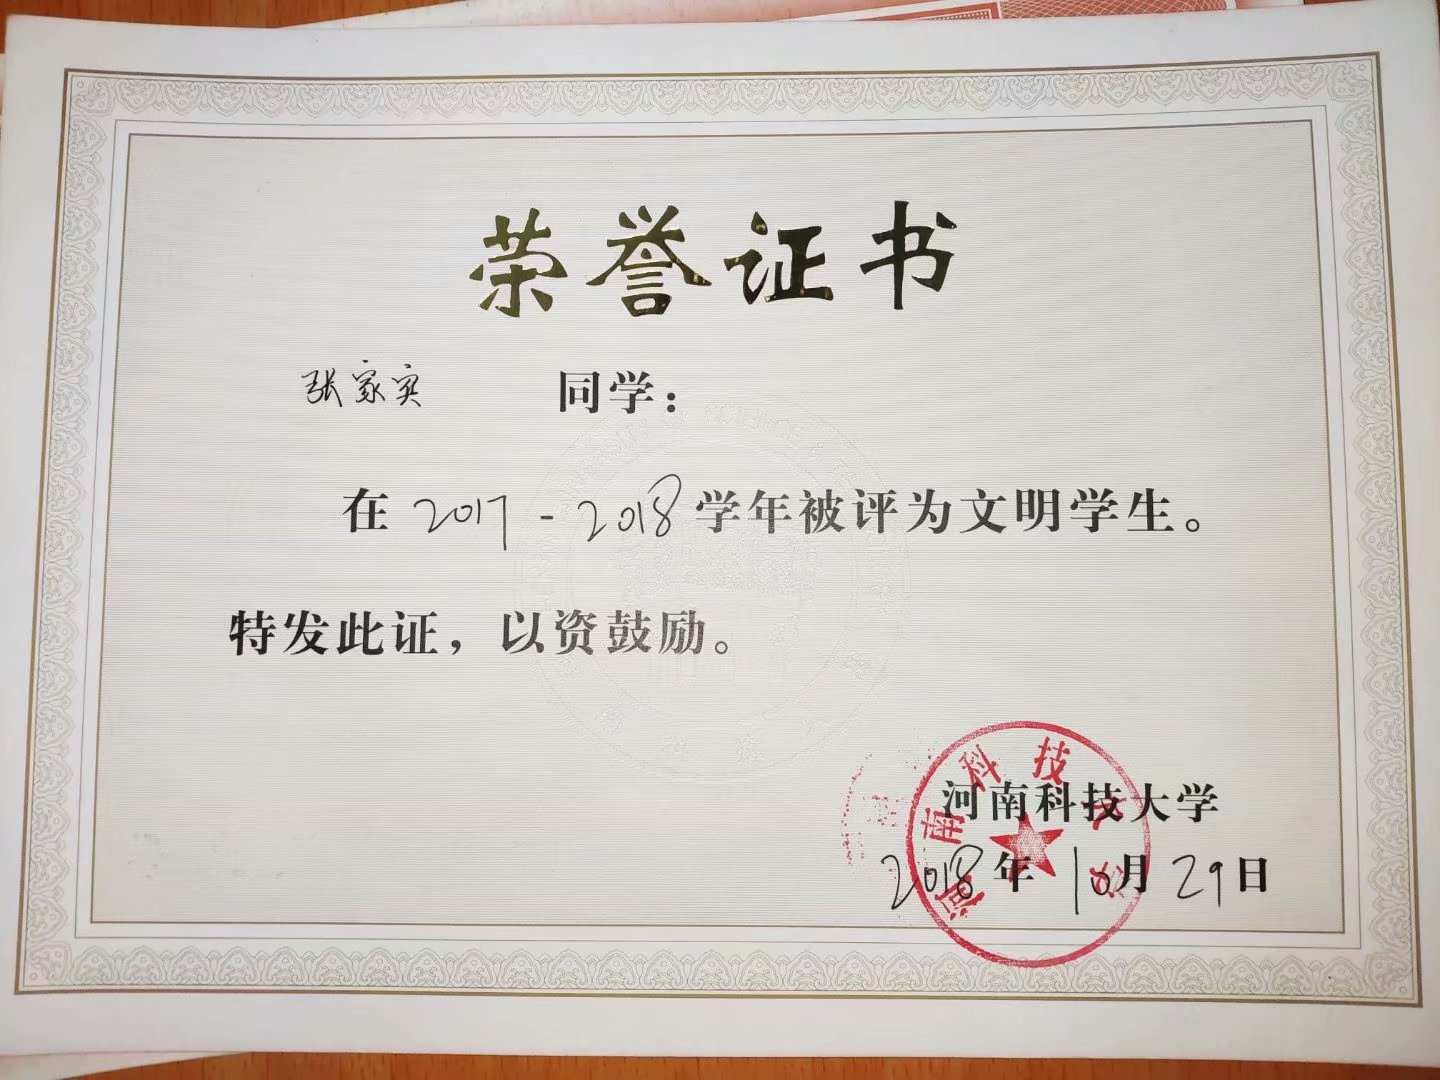 荣誉证书
张家实 同学：
在 2017 - 2018 学年被评为文明学生。
特发此证，以资鼓励。
河南科技大学
2018年10月29日
河南科技大学